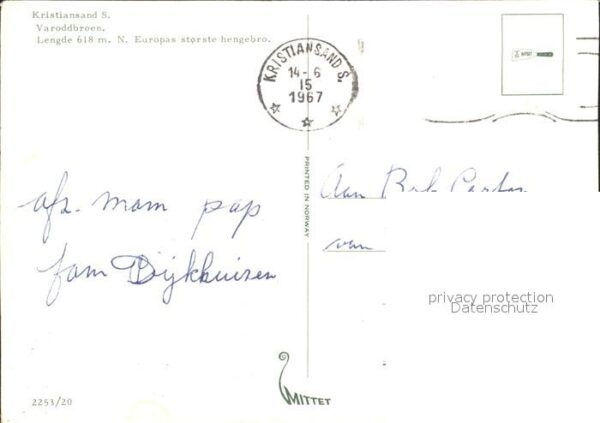 Kristiansand S.
Varoddbroen.
Lengde 618 m. N. Europas største hengebro.
KRISTIANSAND S.
14-6
15
1967
PRINTED IN NORWAY
afz. mam pap
fam Dijkhuizen
Aan
van
privacy protection
Datenschutz
MITTET
2253/20